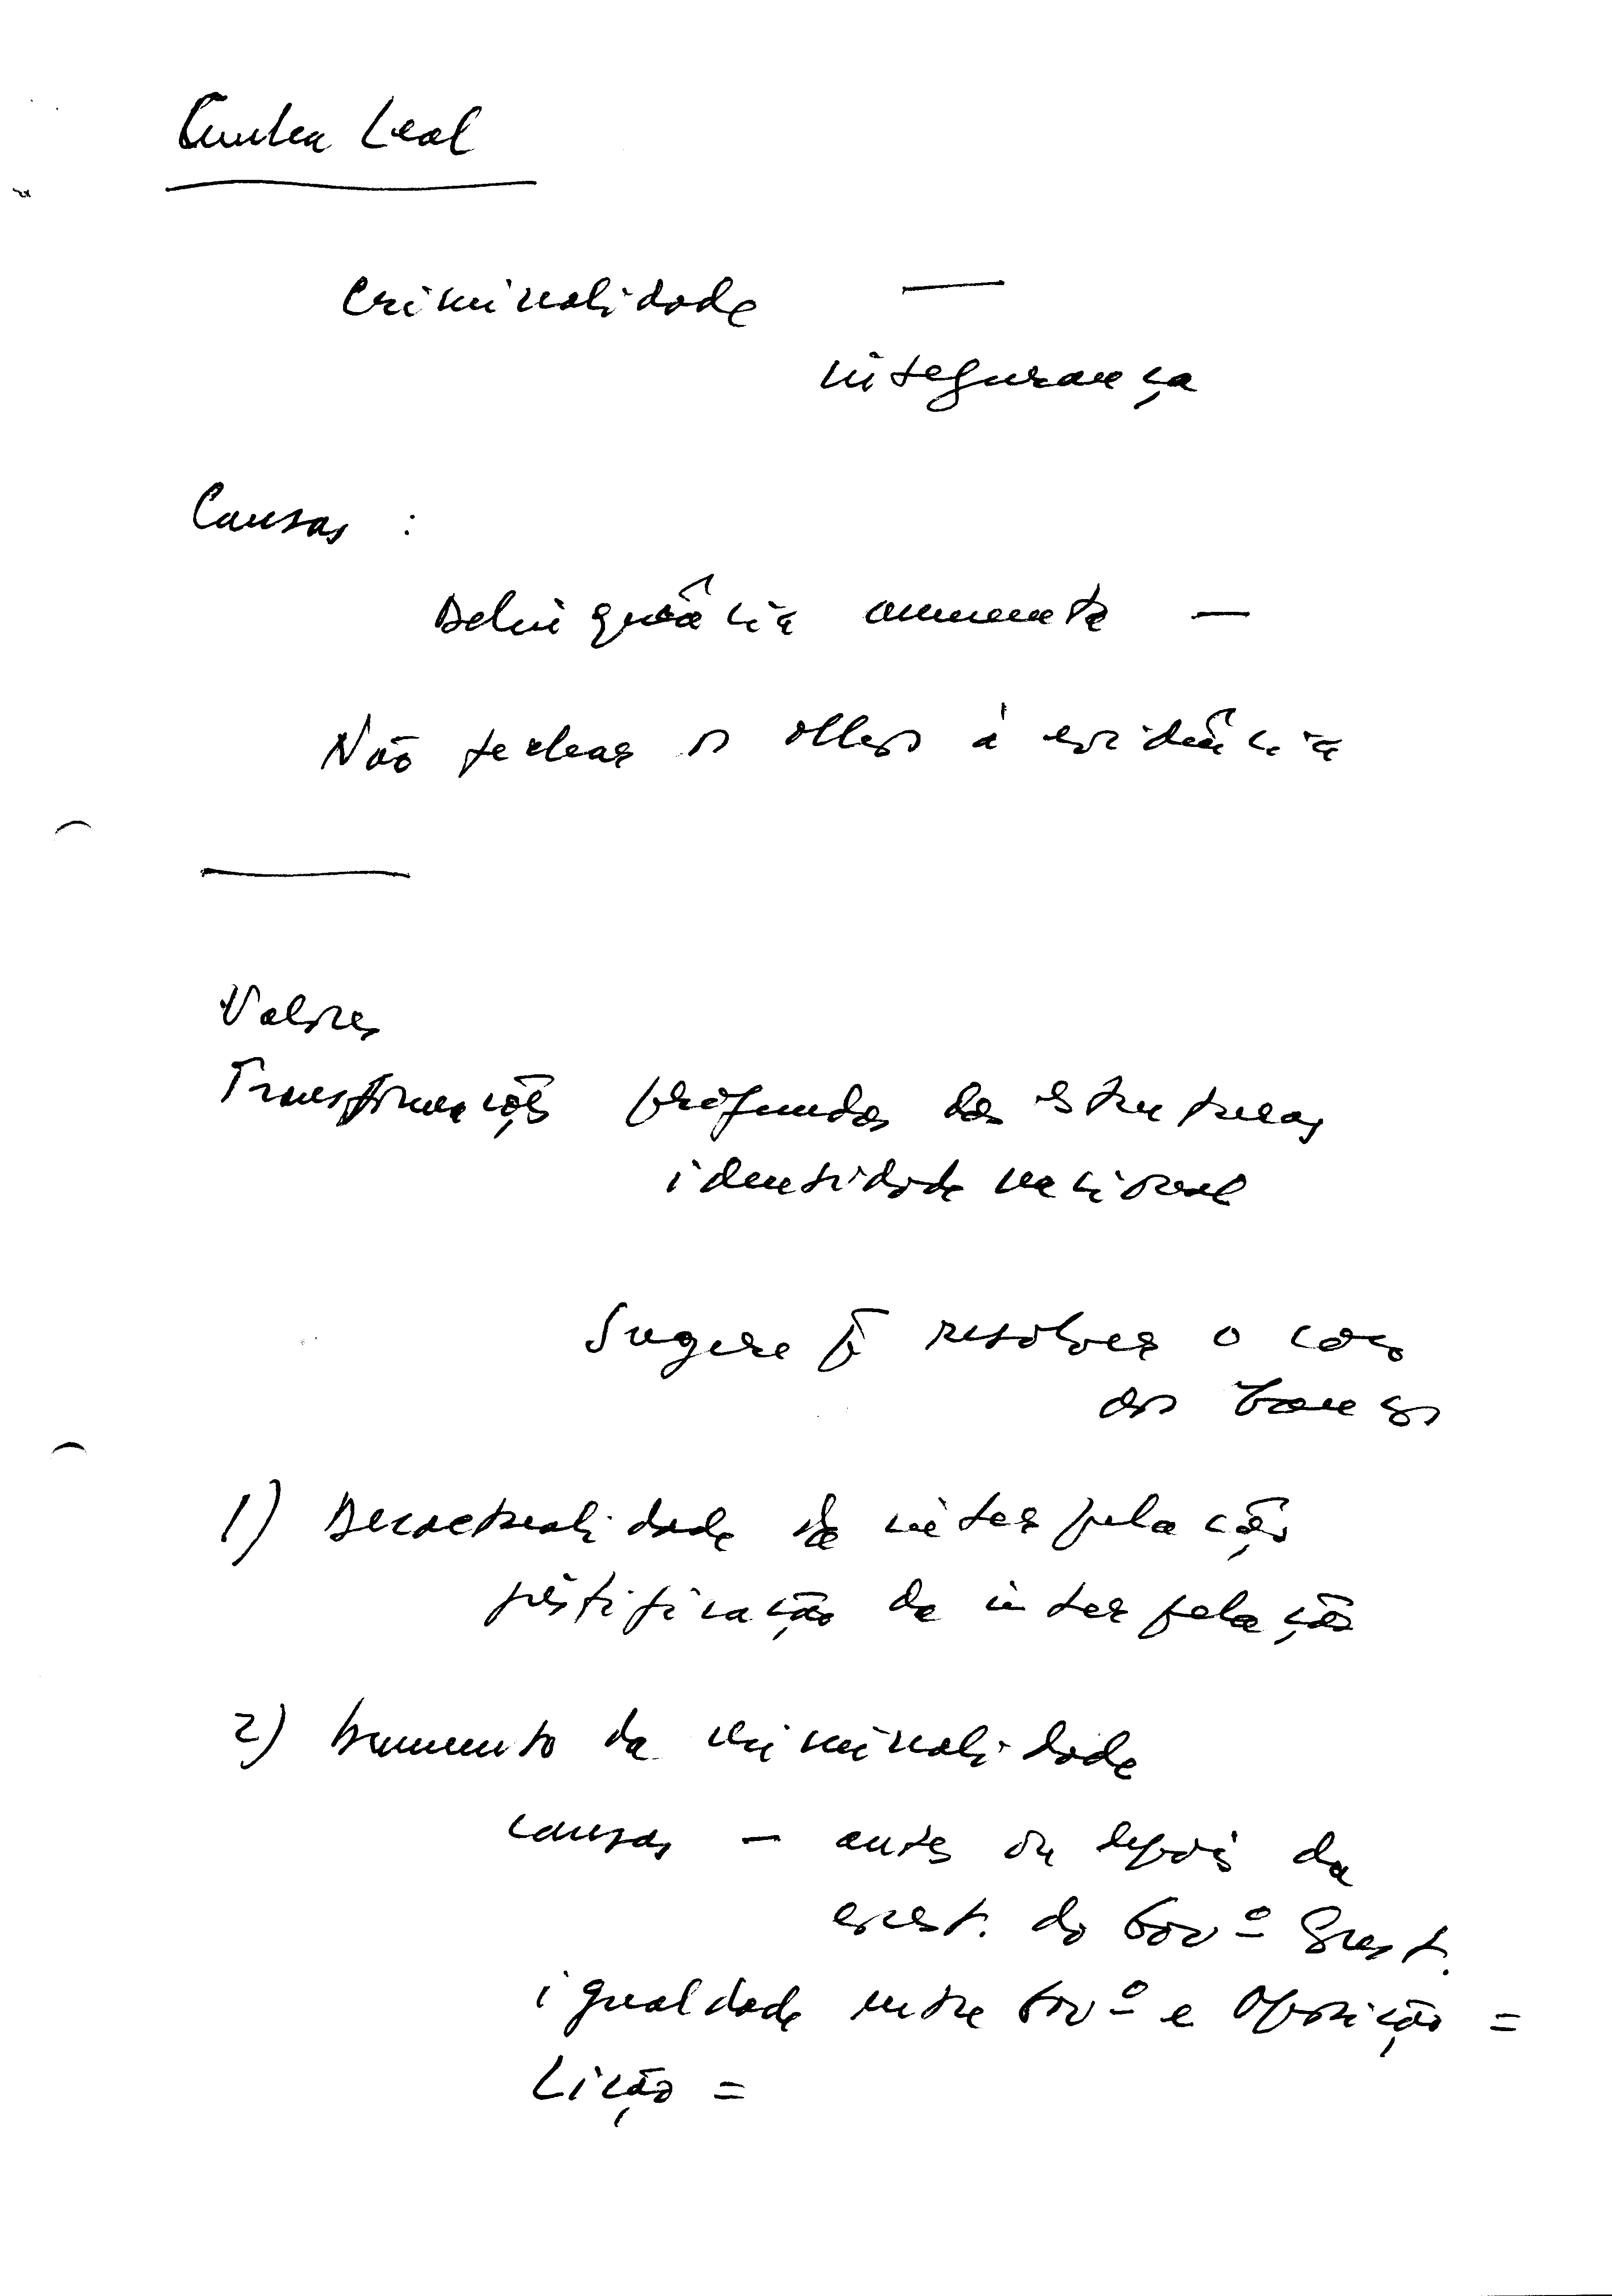 Cunha Leal
Criminalidade —
insegurança
Causas :
Delinquência aumenta —
Não fechar os olhos à evidência
Valores
Transformações profundas das estruturas
identidade nacional
Sugere q resolver o caso
dos
1) Desactualidade da interpelação
justificação da interpelação
2) Aumento da criminalidade
causas — antes ou depois da
exist. do Govº
igualdade entre Govº e Oposição =
Lição =